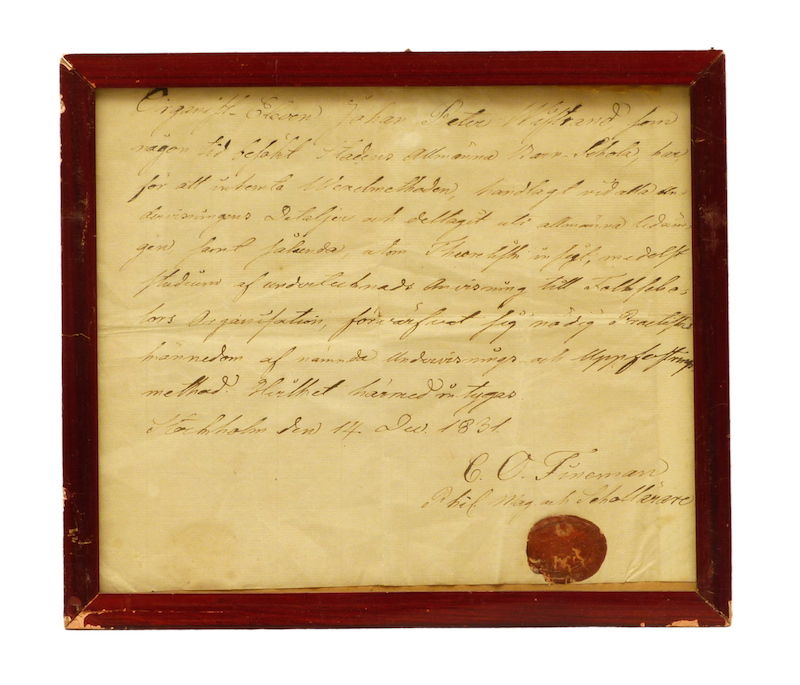 Organist-Eleven Johan Peter Wistrand som
någon tid besökt Stadens Allmänna Barn-Schola, har
för att inhemta Wexelmethoden, handlagt vid alla un-
dervisningens Detaljer och deltagit uti allmänna lednin-
gen samt sålunda, utom Theoretisk insigt, medelst
studium af undertecknads Anvisning till Folkscho-
lors Organisation, förvärfvat sig nödig Practisk
kännedom af nämnda Undervisnings och Uppfostrings
method. Hvilket härmed intygas.
Stockholm den 14 Dec. 1831.
C. O. Fineman
Phil Mag och Schollärare